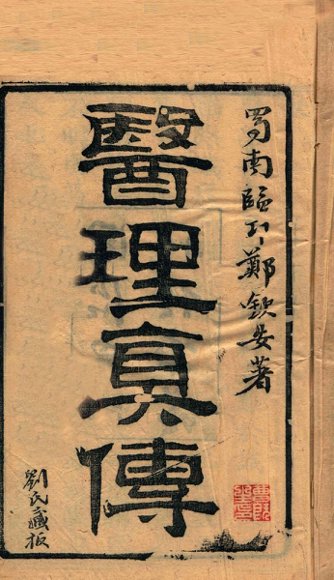 蜀南臨卭鄭欽安著
醫理真傳
劉氏藏板